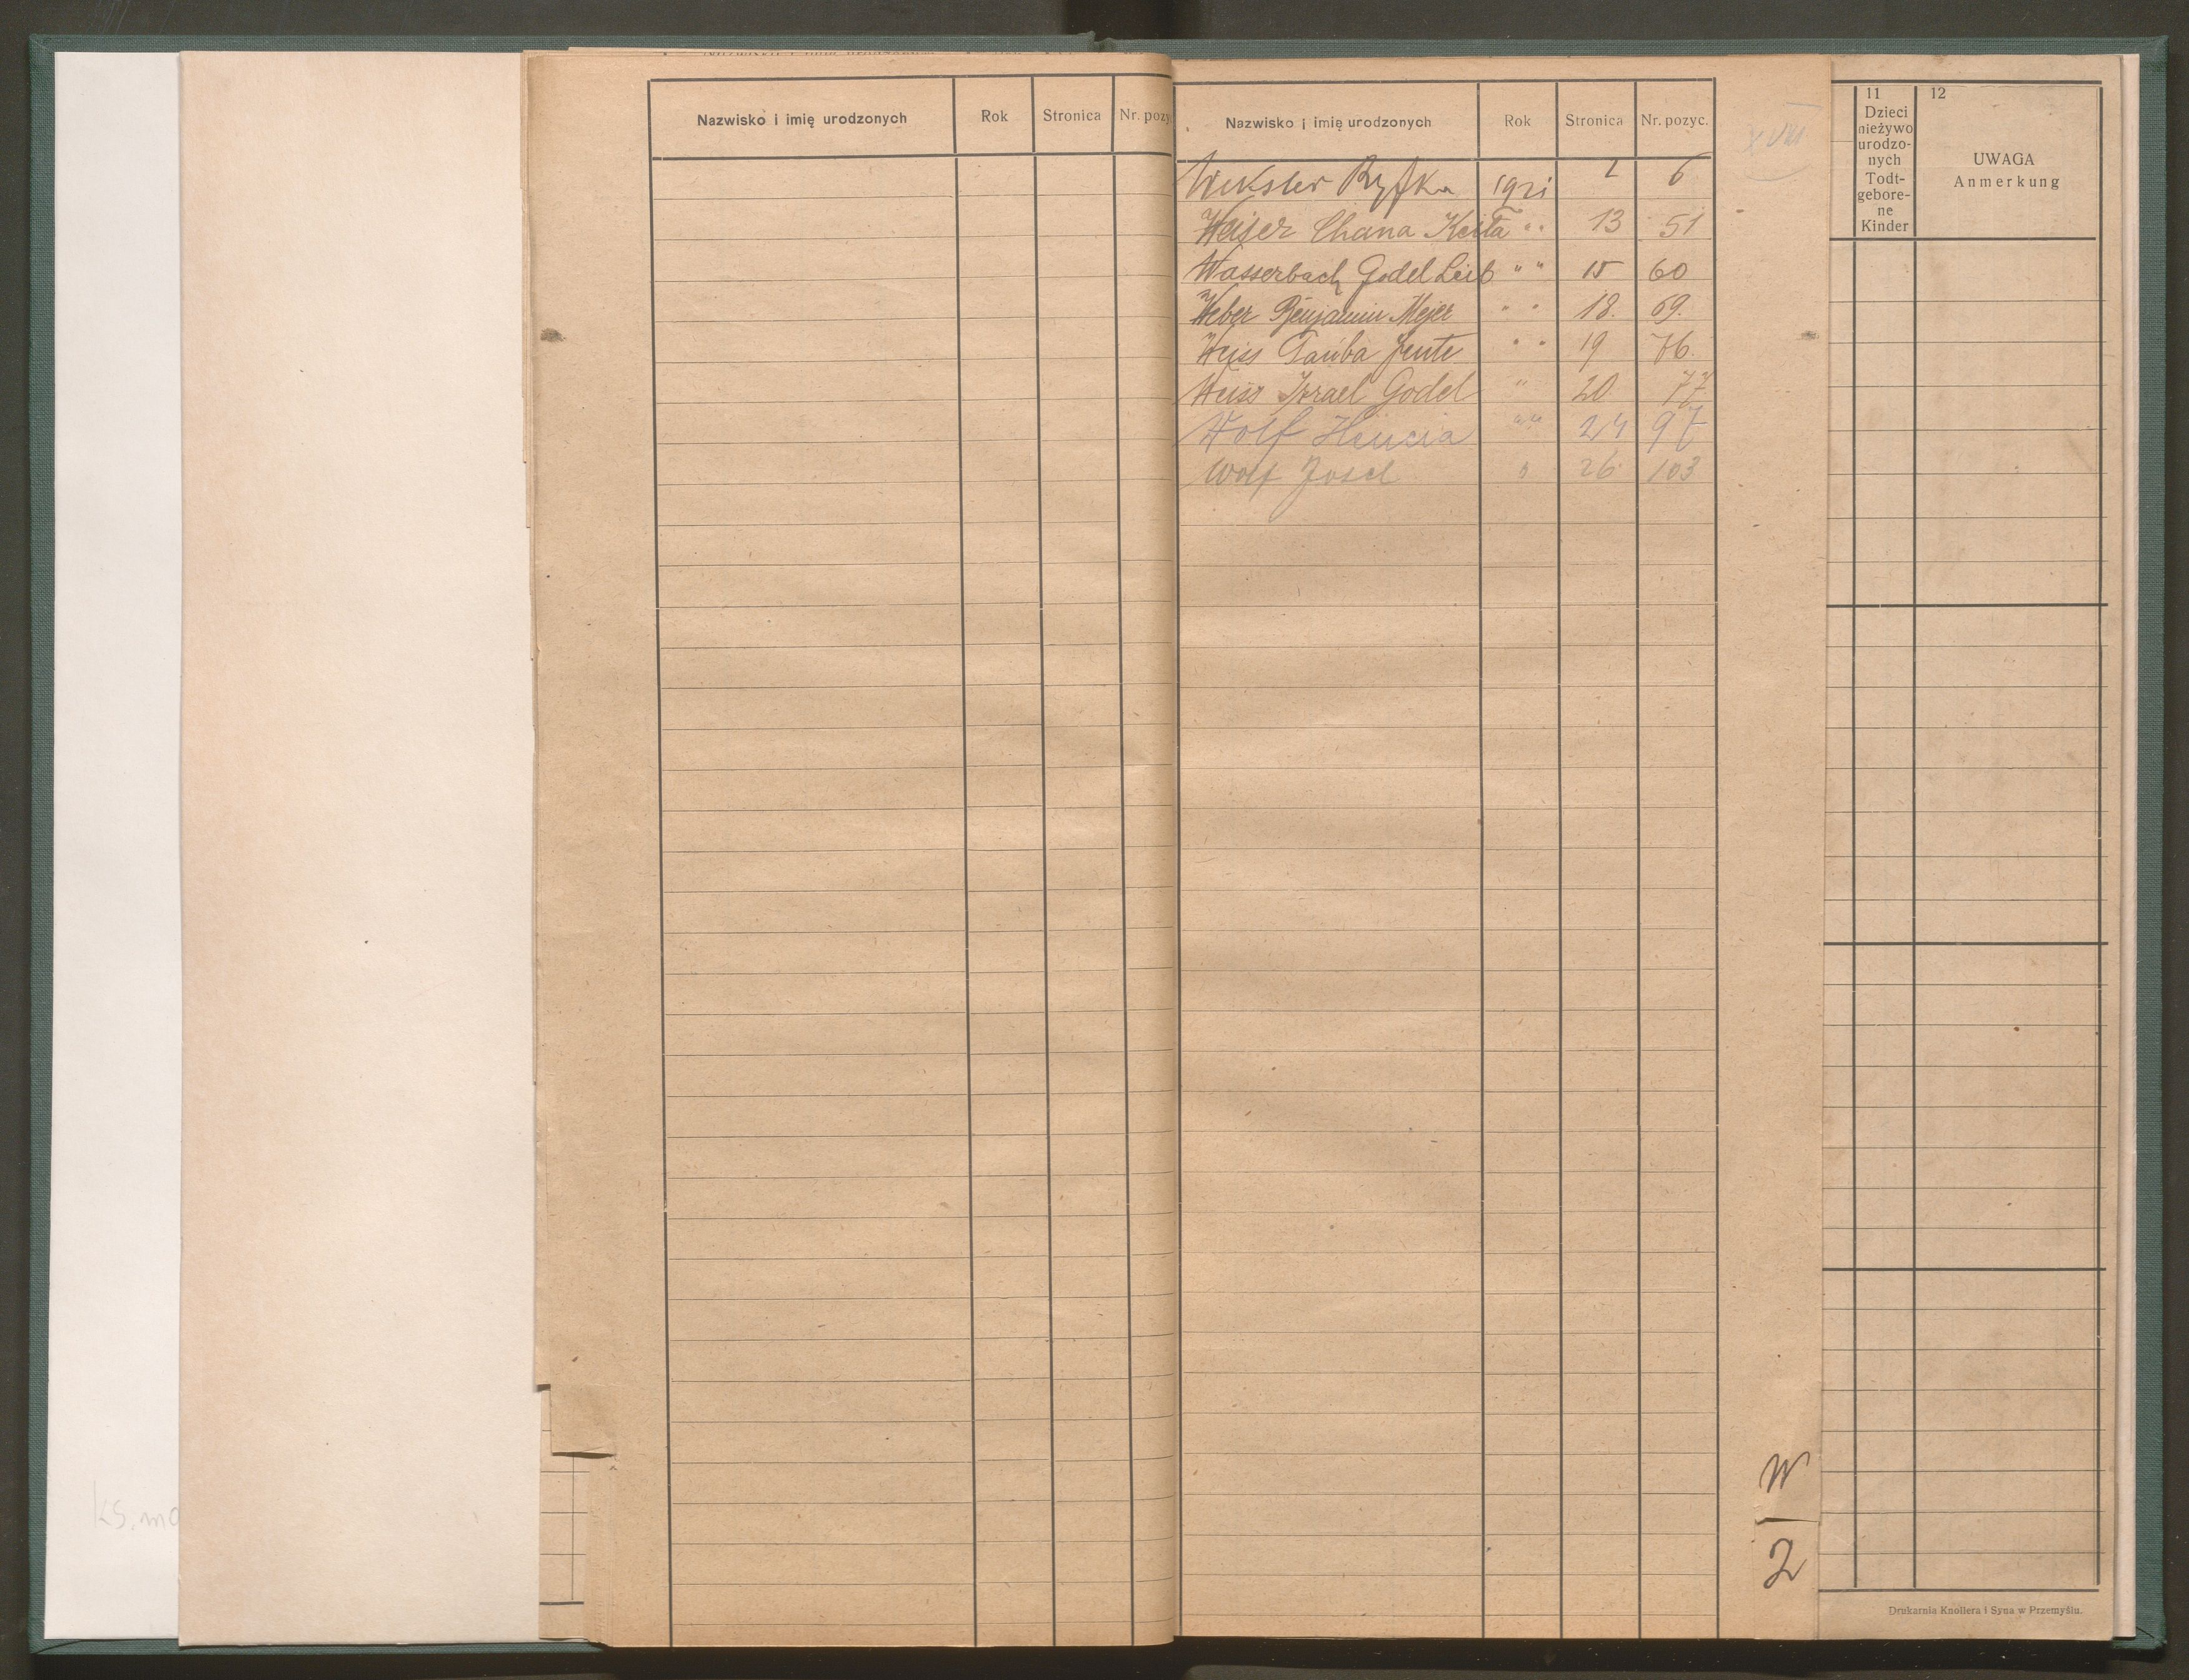 Nazwisko i imię urodzonych Rok Stronica Nr. pozy
Nazwisko i imię urodzonych Rok Stronica Nr. pozyc.
XVIII
Weksler Ryfka 1921 2 6
Weijer Chana Keila " " 13 51
Wasserbach Godel Leib " " 15 60
Weber Benjamin Mejer " " 18. 69.
Weiss Tauba Jente " " 19 76.
Weiss Izrael Godel " 20 77
Wolf Heucia " " 24 97
Wolf Josel " 26 103
W
Z
11
Dzieci
nieżywo
urodzo-
nych
Todt-
gebore-
ne
Kinder
12
UWAGA
Anmerkung
Drukarnia Knollera i Syna w Przemyślu.
ks. mo